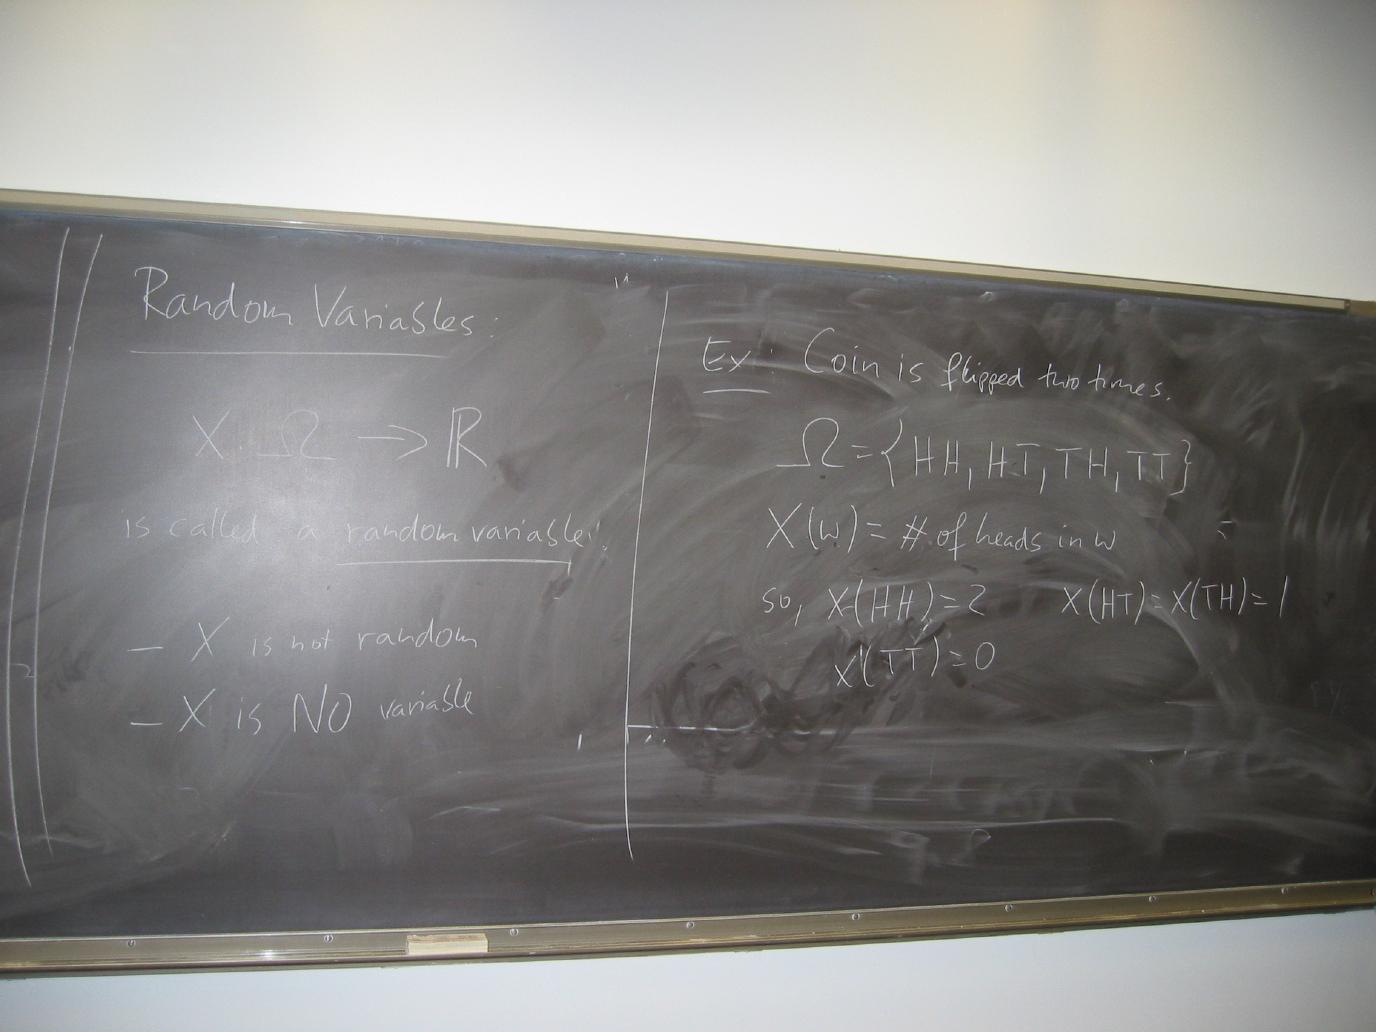 Random Variables:
X: Ω → ℝ
is called a random variable!
- X is not random
- X is NO variable
Ex: Coin is flipped two times.
Ω = {HH, HT, TH, TT}
X(w) = # of heads in w
so, X(HH) = 2 X(HT) = X(TH) = 1
X(TT) = 0